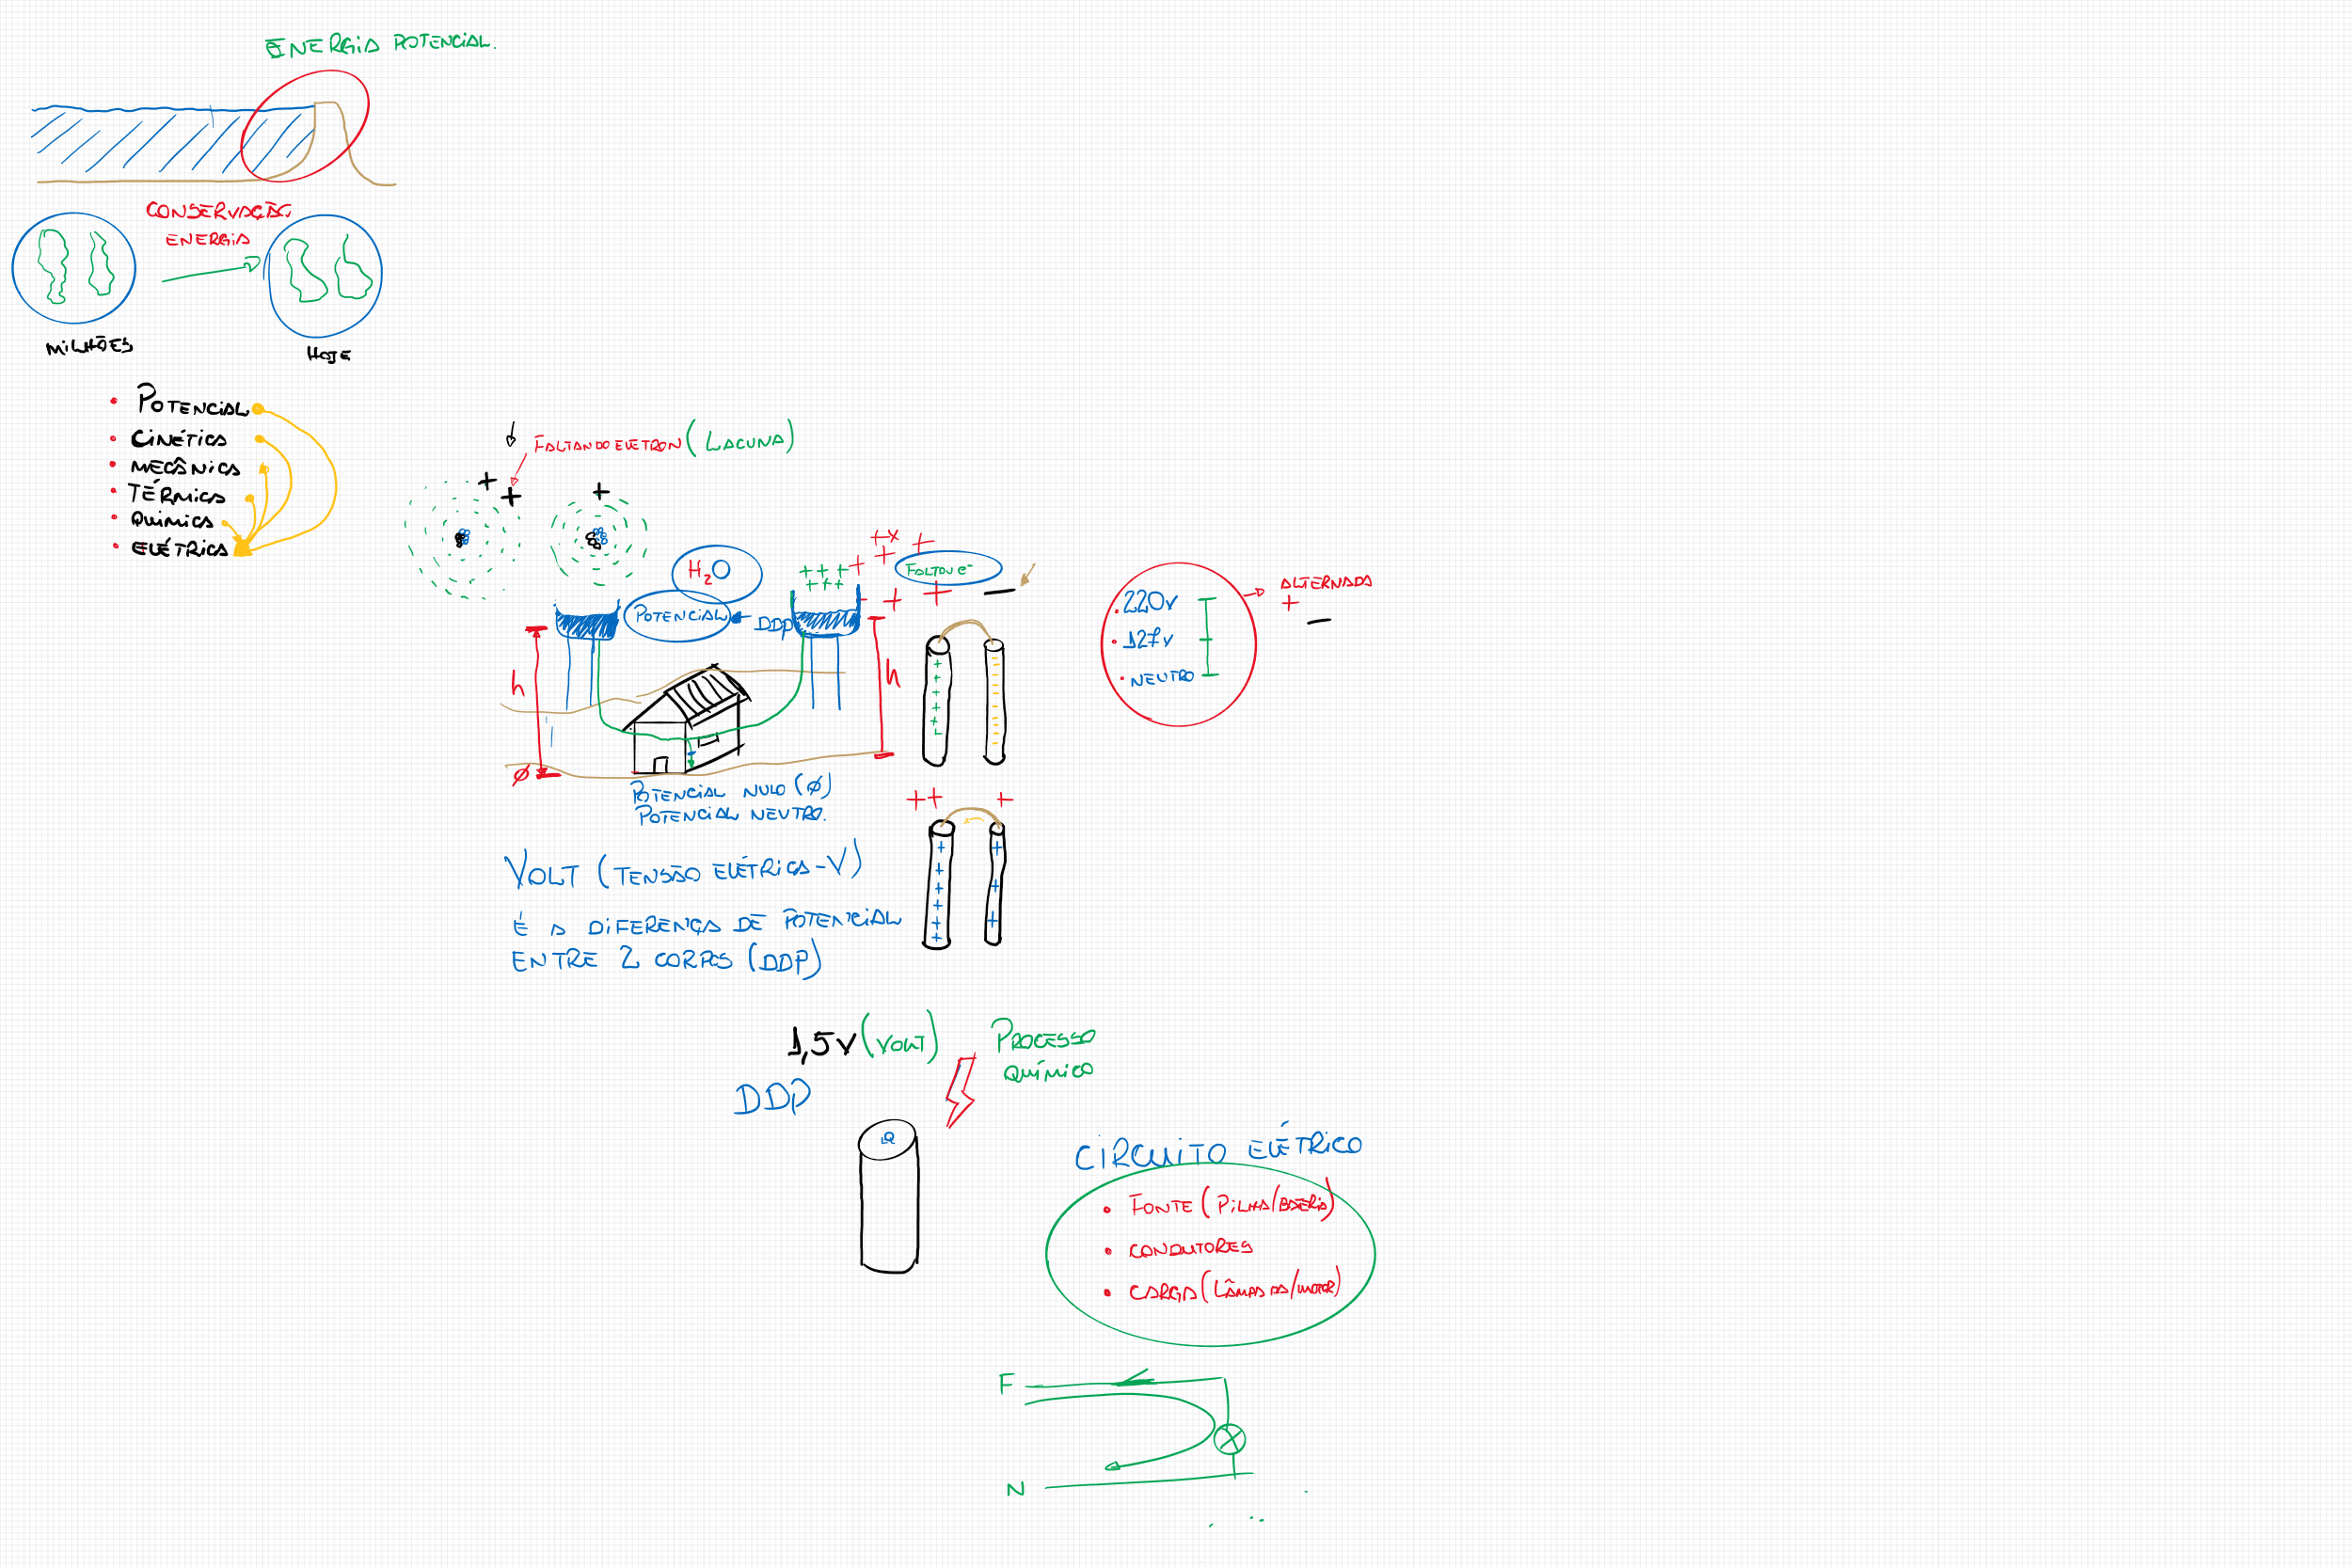 ENERGIA POTENCIAL.
CONSERVAÇÃO
ENERGIA
MILHÕES
HOJE
• POTENCIAL
• CINÉTICA
• MECÂNICA
• TÉRMICA
• QUÍMICA
• ELÉTRICA
FALTANDO ELÉTRON (LACUNA)
+
+
+
H₂O
POTENCIAL
DDP
+++
+++
FALTOU e⁻
h
h
ø
POTENCIAL NULO (ø)
POTENCIAL NEUTRO.
• 220V
• 127V
• NEUTRO
ALTERNADA
+
−
++ +
VOLT (TENSÃO ELÉTRICA-V)
É A DIFERENÇA DE POTENCIAL
ENTRE 2 CORPOS (DDP)
1,5V (VOLT)
DDP
PROCESSO
QUÍMICO
CIRCUITO ELÉTRICO
• FONTE (PILHA/BATERIA)
• CONDUTORES
• CARGA (LÂMPADA/MOTOR)
F
N